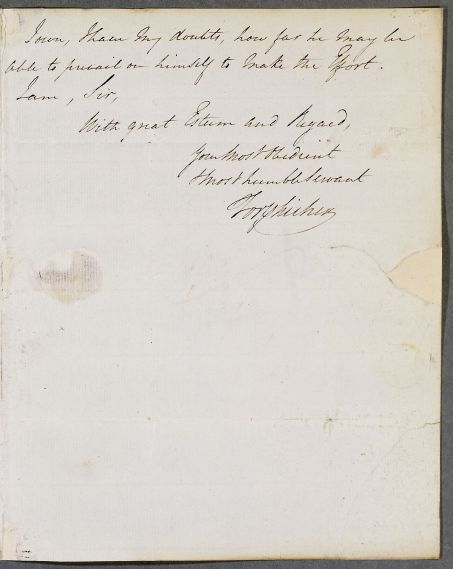 I own, I have My doubts, how far he May be
able to prevail on himself to Make the Effort.
I am, Sir,
With great Esteem and Regard,
Your Most Obedient
& most humble Servant